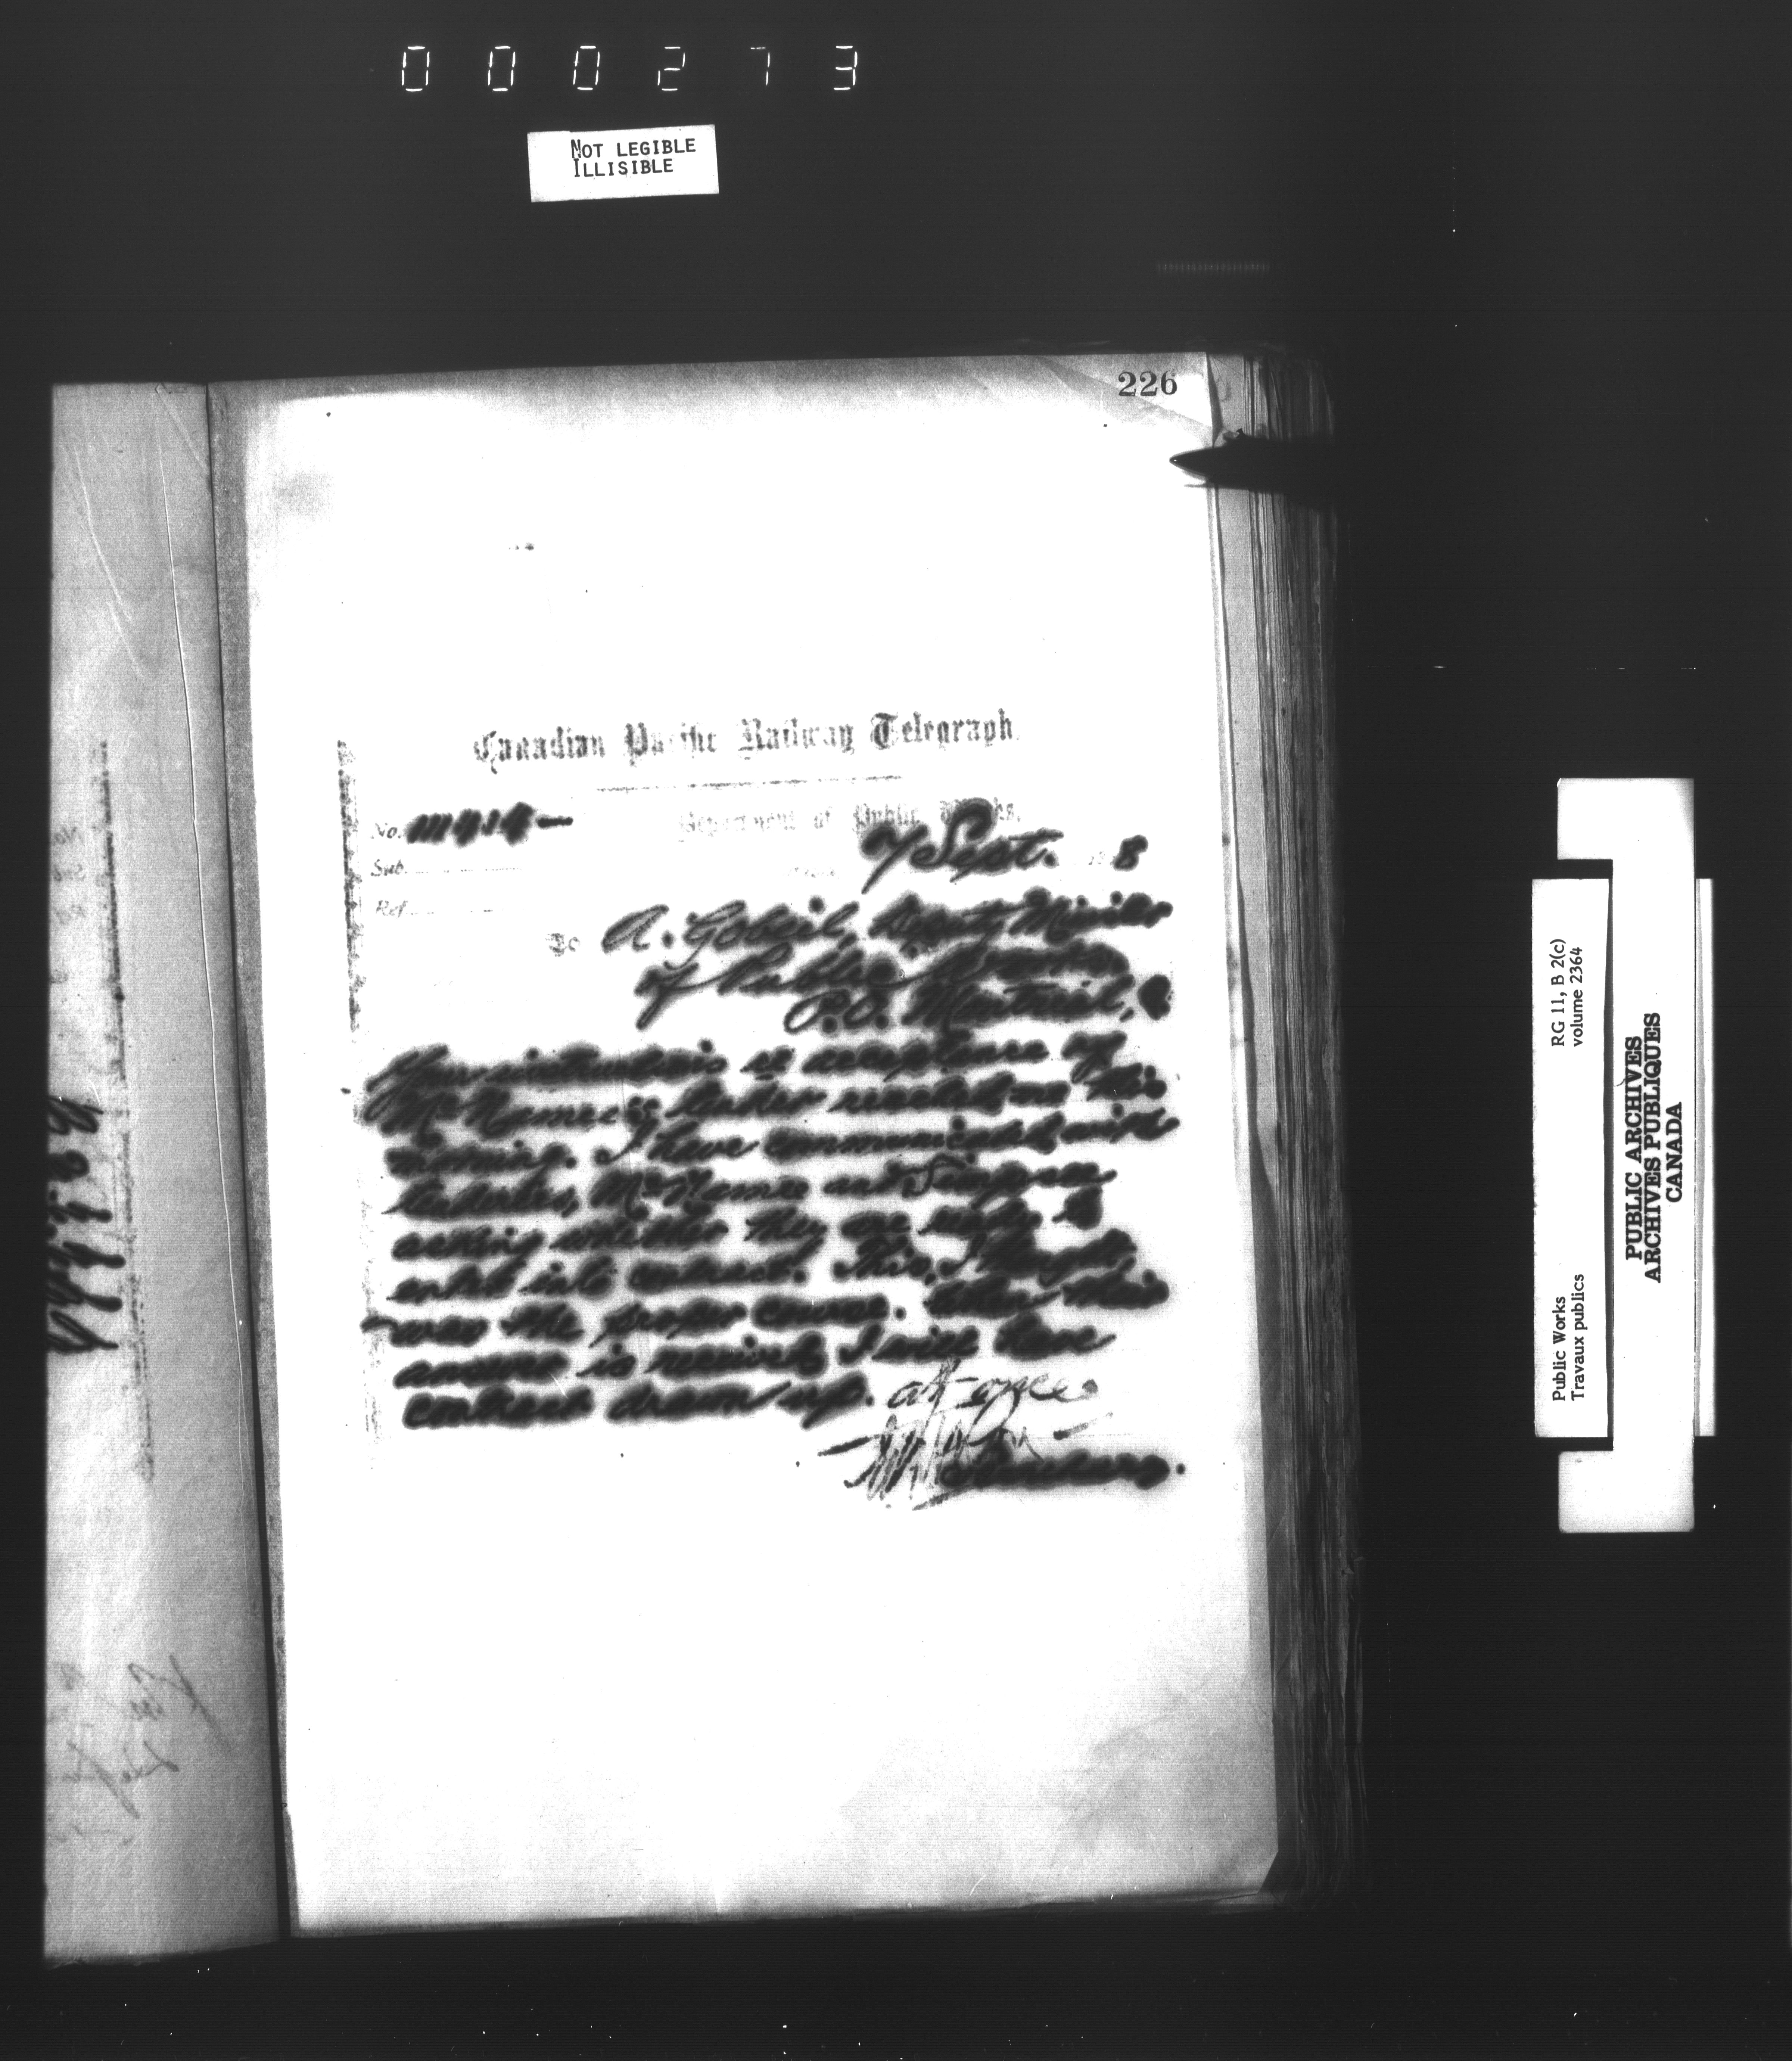 000273
NOT LEGIBLE
ILLISIBLE
226
Canadian Pacific Railway Telegraph.
No.
Department of Public Works.
7 Sept. 8
Sub.
Ref.
To A. Gobeil, Deputy Minister
of Public Works
P.O. Montreal,
Your instructions re acceptance of
McNamee tender received on this
morning. I have communicated with
tenderers, McNamee and Simpson
asking whether they are ready to
enter into contract. This, I thought,
was the proper course. When their
answer is received, I will have
contract drawn up. at once
Secretary.
RG 11, B 2(c)
volume 2364
Public Works
Travaux publics
PUBLIC ARCHIVES
ARCHIVES PUBLIQUES
CANADA